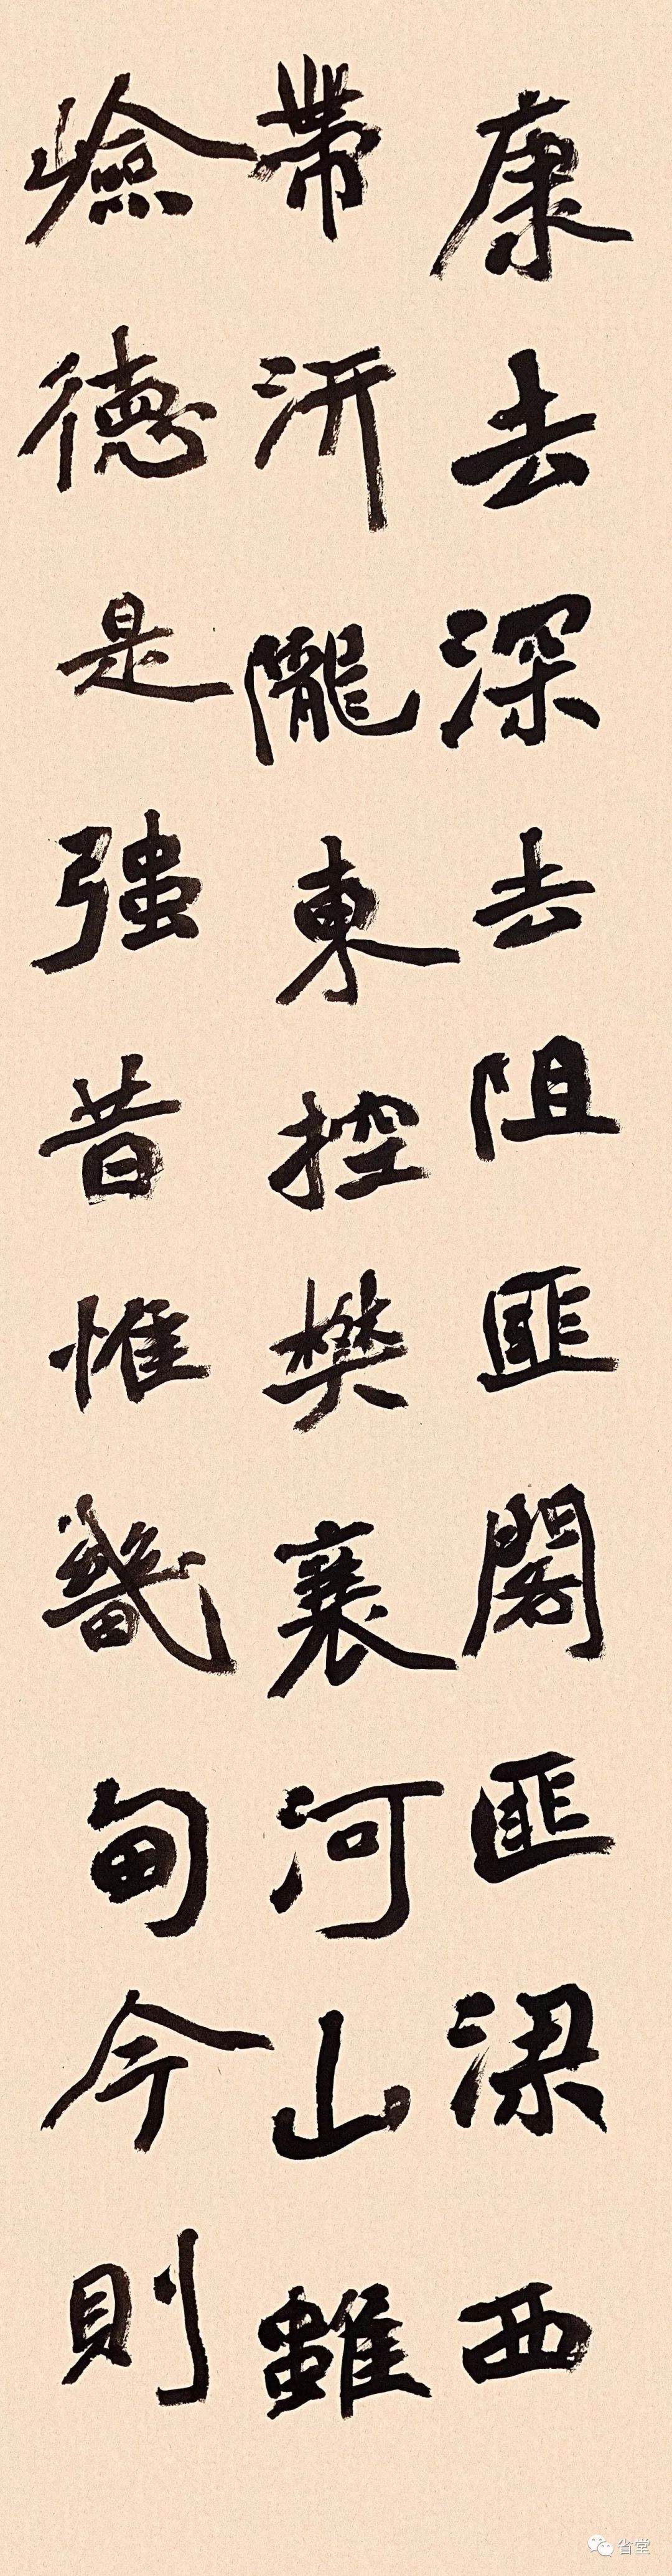 康去深去阻匪閣匪梁西
帶汧隴東控樊襄河山雖
嶮德是强昔惟畿甸今則
省堂